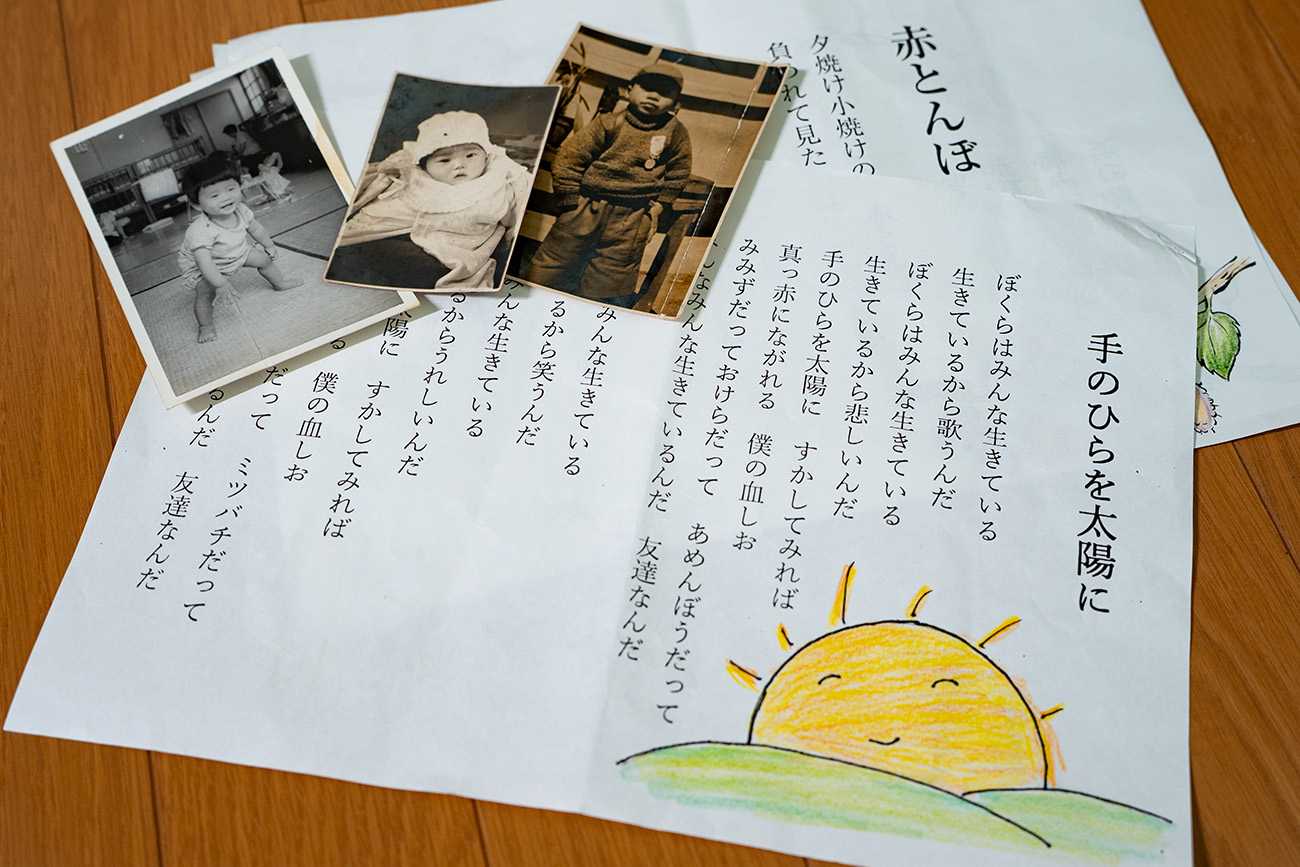 赤とんぼ
夕焼け小焼けの
負われて見た
手のひらを太陽に
ぼくらはみんな生きている
生きているから歌うんだ
ぼくらはみんな生きている
生きているから悲しいんだ
手のひらを太陽に　すかしてみれば
真っ赤にながれる　僕の血しお
みみずだっておけらだって　あめんぼうだって
なみんな生きているんだ　友達なんだ
みんな生きている
るから笑うんだ
んな生きている
るからうれしいんだ
太陽に　すかしてみれば
る　僕の血しお
だって　ミツバチだって
るんだ　友達なんだ